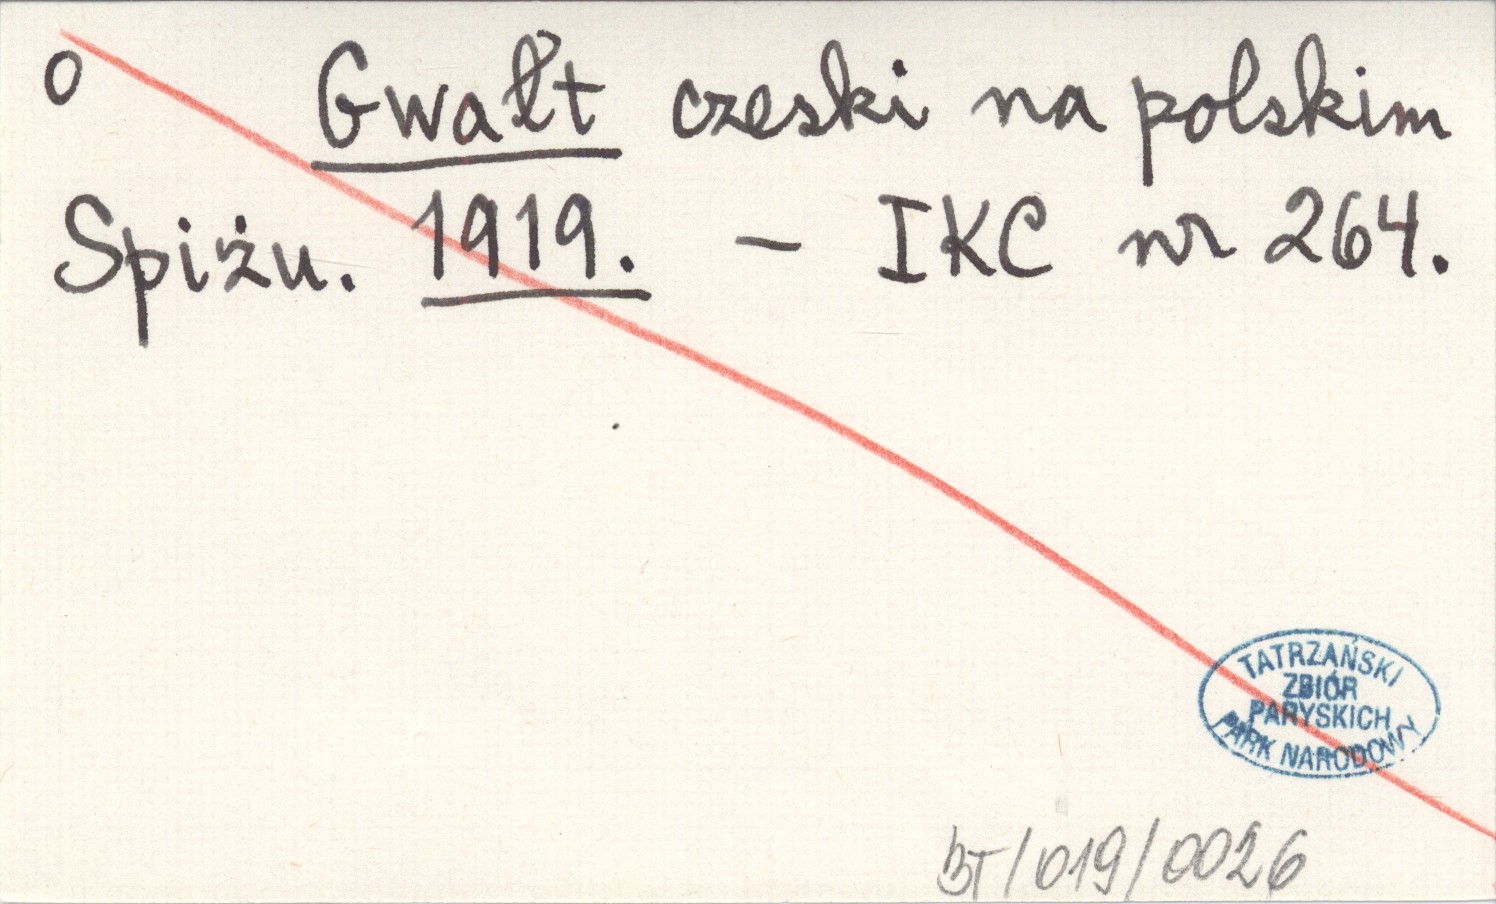 o Gwałt czeski na polskim
Spiżu. 1919. – IKC nr 264.
TATRZAŃSKI
ZBIÓR
PARYSKICH
PARK NARODOWY
BT/019/0026